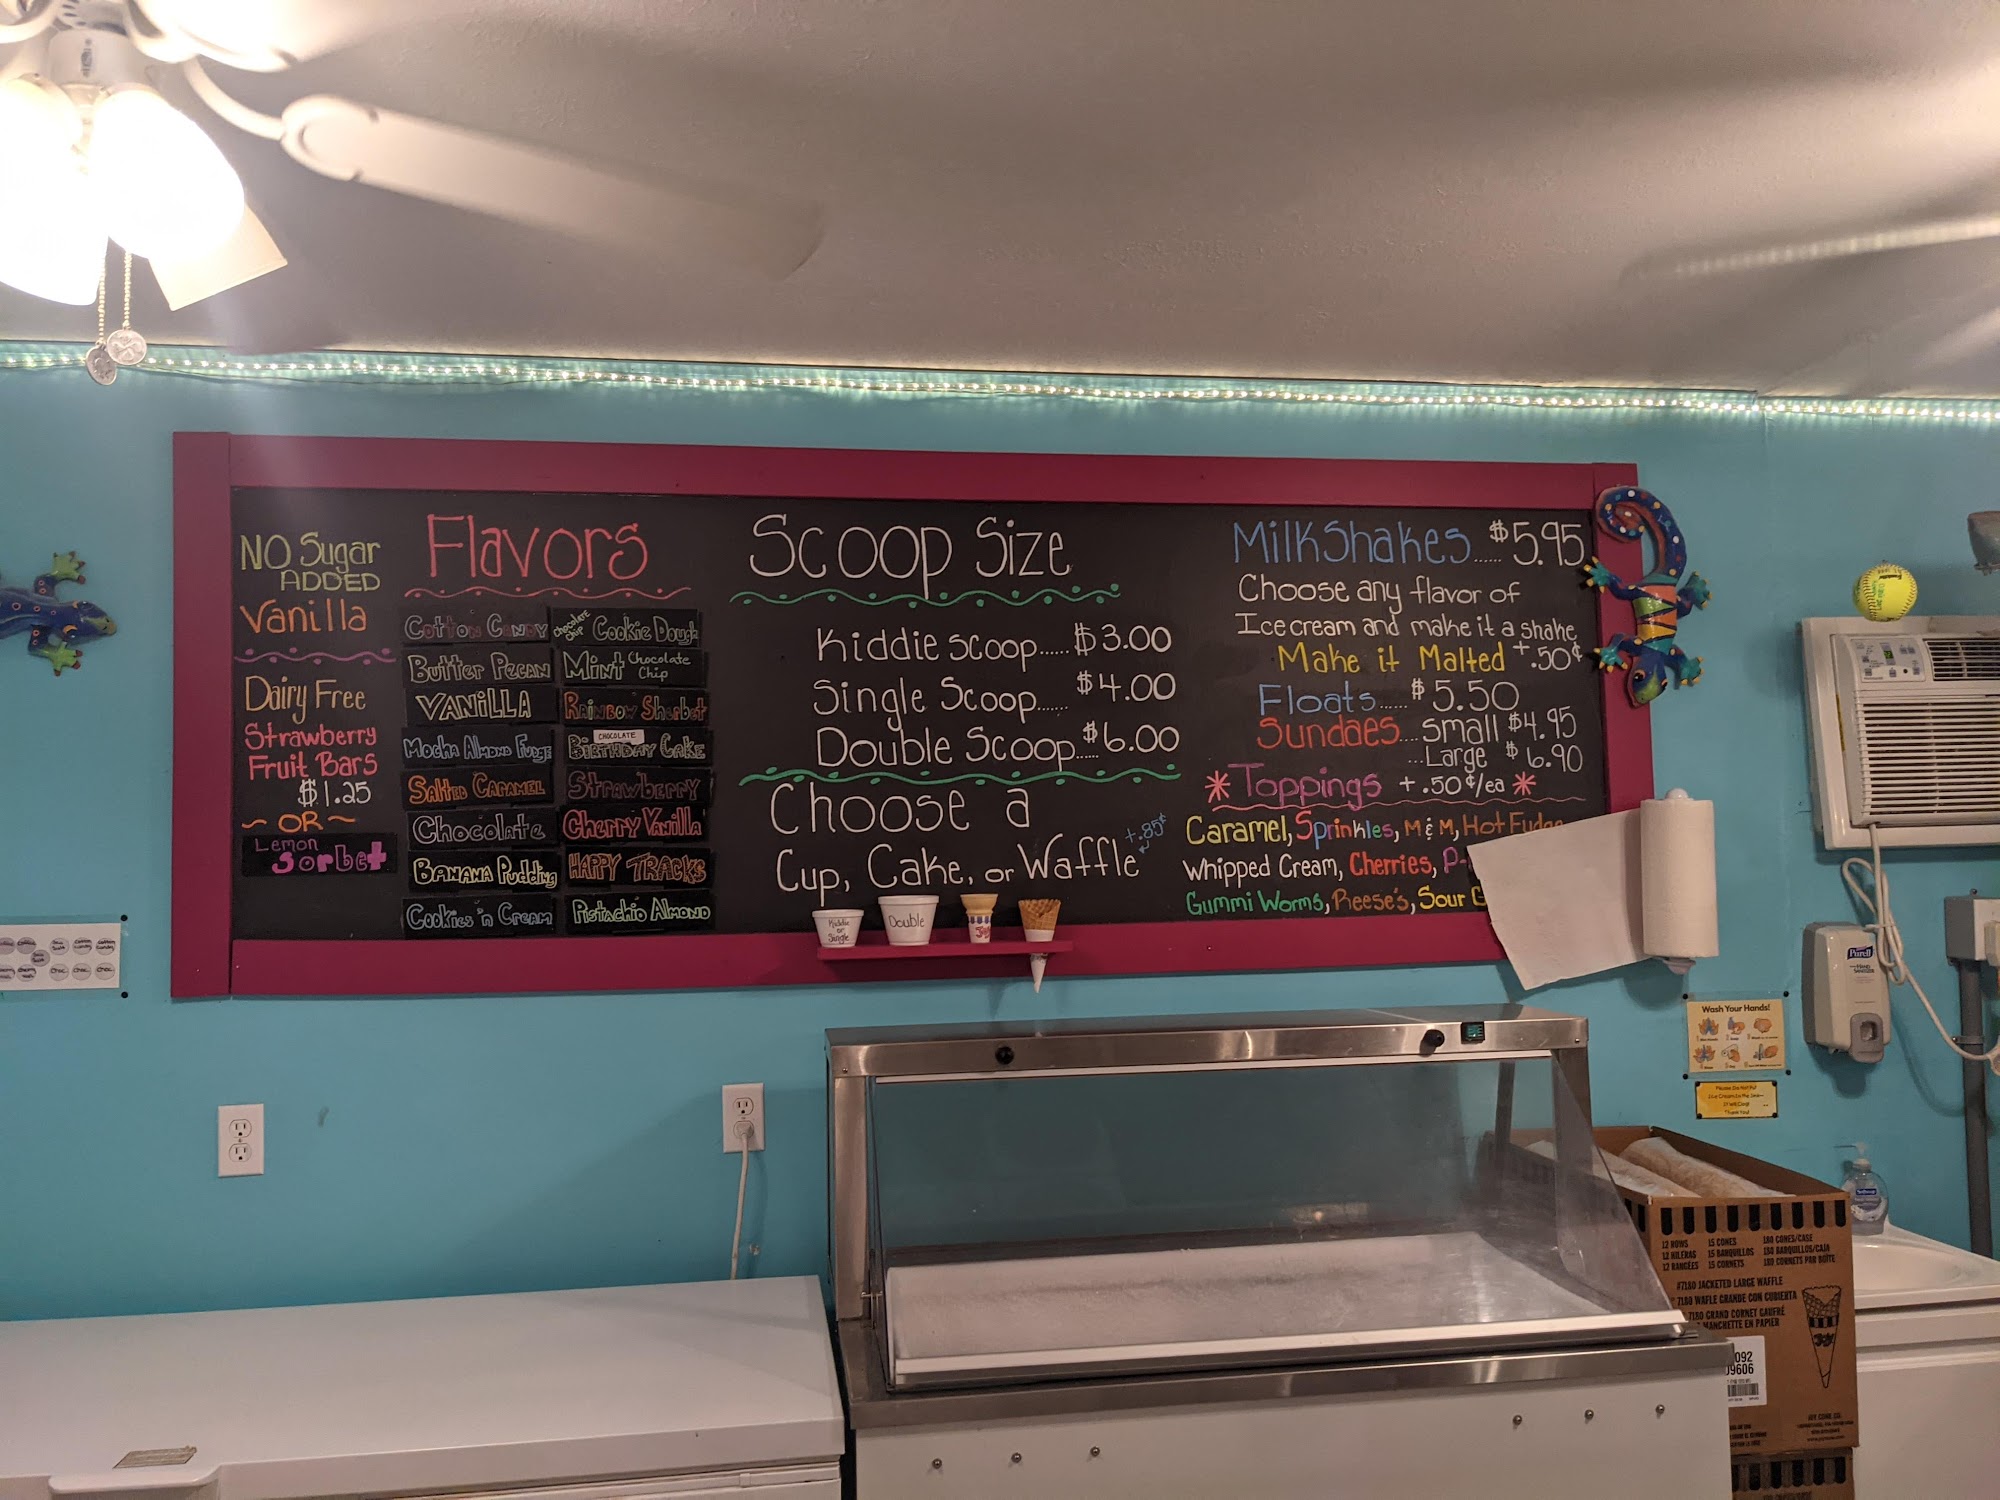 NO Sugar
ADDED
Vanilla
Dairy Free
Strawberry
Fruit Bars
$1.25
~ OR ~
Lemon
Sorbet
Flavors
Cotton Candy
Butter Pecan
VANILLA
Mocha Almond Fudge
Salted Caramel
Chocolate
Banana Pudding
Cookies 'n Cream
Chocolate Chip Cookie Dough
Mint Chocolate Chip
Rainbow Sherbet
CHOCOLATE
Birthday Cake
Strawberry
Cherry Vanilla
HAPPY TRACKS
Pistachio Almond
Scoop Size
Kiddie Scoop...... $3.00
Single Scoop...... $4.00
Double Scoop..... $6.00
Choose a
Cup, Cake, or Waffle +.85¢
Kiddie or Single
Double
Joy
MilkShakes...... $5.95
Choose any flavor of
Ice cream and make it a shake
Make it Malted +.50¢
Floats...... $5.50
Sundaes.... Small $4.95
...Large $6.90
* Toppings +.50¢/ea *
Caramel, Sprinkles, M & M, Hot Fudge
Whipped Cream, Cherries, P-
Gummi Worms, Reese's, Sour G
Purell
Wash Your Hands!
Please Do Not Put
Ice Cream In the Sink-
It Will Clog!
Thank You!
Softsoap
12 ROWS 15 CONES 180 CONES/CASE
12 HILERAS 15 BARQUILLOS 180 BARQUILLOS/CAJA
12 RANGÉES 15 CORNETS 180 CORNETS PAR BOÎTE
#7180 JACKETED LARGE WAFFLE
7180 WAFLE GRANDE CON CUBIERTA
7180 GRAND CORNET GAUFRÉ
MANCHETTE EN PAPIER
092
09606
JOY CONE CO.